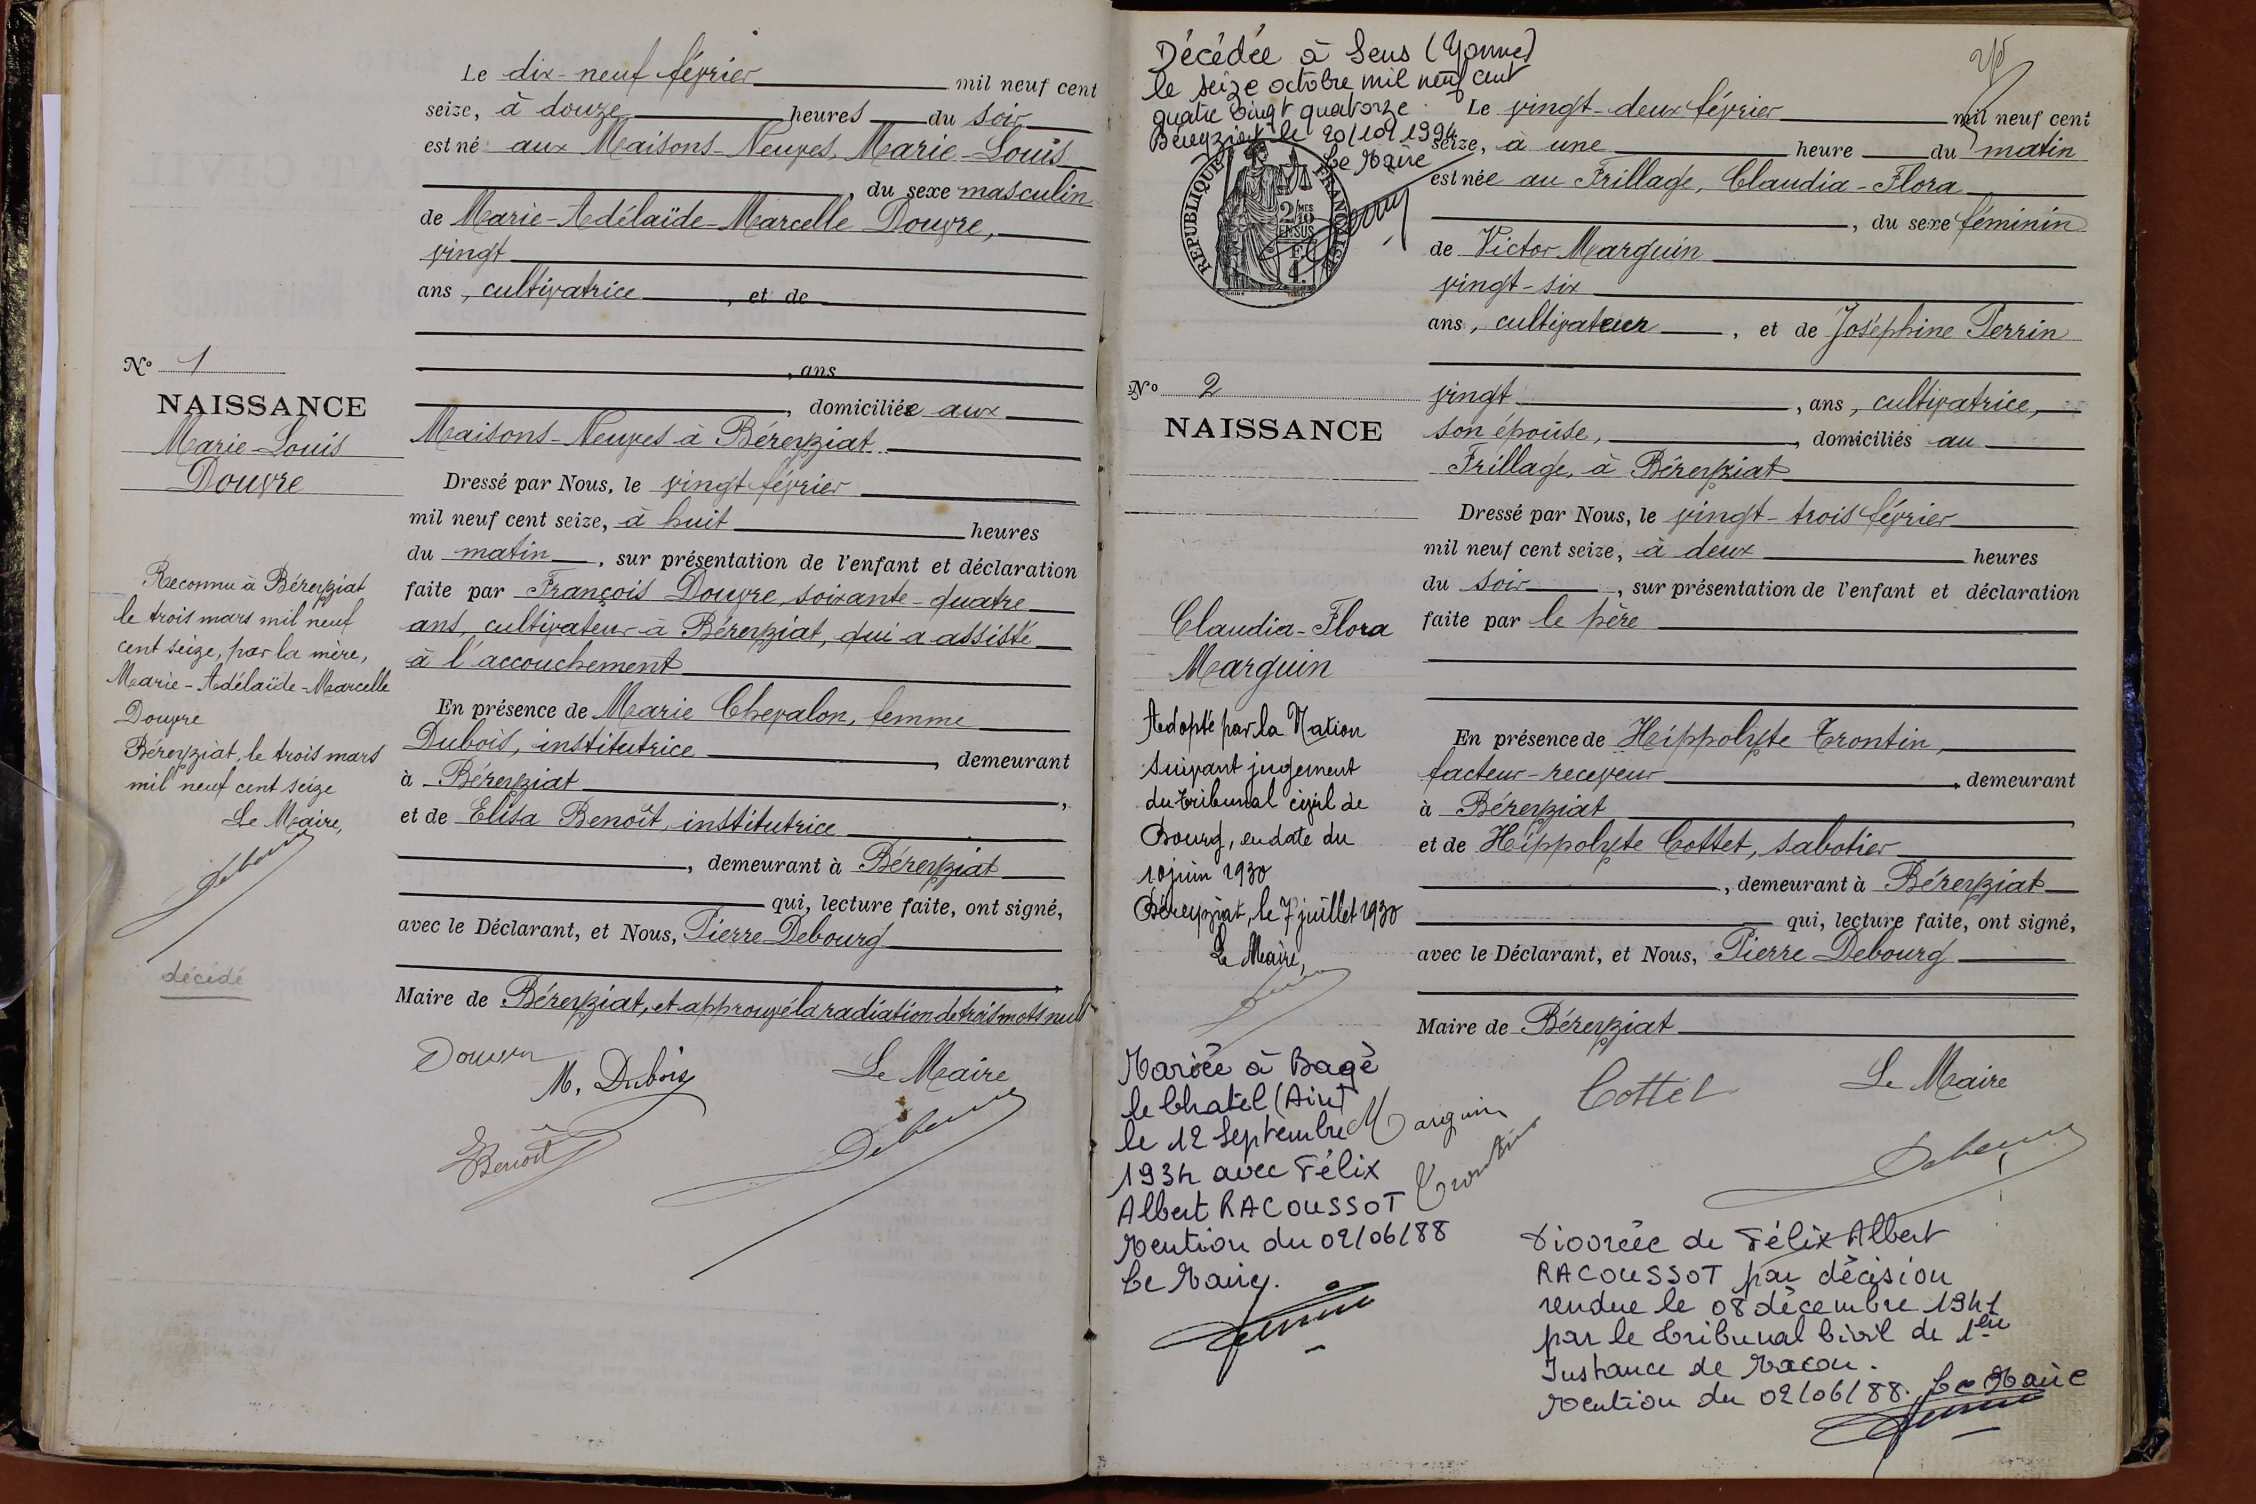 Le dix-neuf février mil neuf cent
seize, à douze heures du soir
est né aux Maisons-Neuves, Marie-Louis
, du sexe masculin
de Marie-Adélaïde-Marcelle Douvre,
vingt
ans, cultivatrice, et de
, ans
, domiciliée aux
Maisons-Neuves à Béreyziat
Dressé par Nous, le vingt février
mil neuf cent seize, à huit heures
du matin, sur présentation de l'enfant et déclaration
faite par François Douvre, soixante-quatre
ans, cultivateur à Béreyziat, qui a assisté
à l'accouchement
En présence de Marie Chevalon, femme
Dubois, institutrice, demeurant
à Béreyziat,
et de Elisa Benoît, institutrice
, demeurant à Béreyziat
qui, lecture faite, ont signé,
avec le Déclarant, et Nous, Pierre Debourg
,
Maire de Béreyziat, et approuvé la radiation de trois mots nuls
Douvre
M. Dubois
Le Maire
Benoît
Debourg
No 1
NAISSANCE
Marie-Louis
Douvre
Reconnu à Béreyziat
le trois mars mil neuf
cent seize, par la mère,
Marie-Adélaïde-Marcelle
Douvre
Béreyziat, le trois mars
mil neuf cent seize
Le Maire,
Debourg
décédé
Décédée à Sens (Yonne)
le seize octobre mil neuf cent
quatre vingt quatorze.
Béreyziat le 20/10/1994
Le Maire
REPUBLIQUE FRANÇAISE
2/10 MES
EN SUS
Le vingt-deux février mil neuf cent
seize, à une heure du matin
est née au Frillage, Claudia-Flora
, du sexe féminin
de Victor Marguin
vingt-six
ans, cultivateur, et de Joséphine Perrin
vingt, ans, cultivatrice,
son épouse, domiciliés au
Frillage, à Béreyziat
Dressé par Nous, le vingt-trois février
mil neuf cent seize, à deux heures
du soir, sur présentation de l'enfant et déclaration
faite par le père
En présence de Hippolyte Trontin,
facteur-receveur, demeurant
à Béreyziat,
et de Hippolyte Cottet, sabotier
, demeurant à Béreyziat
qui, lecture faite, ont signé,
avec le Déclarant, et Nous, Pierre Debourg
Maire de Béreyziat
Cottet
Le Maire
Marguin
Trontin
Debourg
No 2
NAISSANCE
Claudia-Flora
Marguin
Adopté par la Nation
suivant jugement
du tribunal civil de
Bourg, en date du
10 juin 1930
Béreyziat, le 7 juillet 1930
Le Maire,
Mariée à Bagé
le Chatel (Ain)
le 12 Septembre
1934 avec Félix
Albert RACOUSSOT
Mention du 02/06/88
Le Maire.
Divorcée de Félix Albert
RACOUSSOT par décision
rendue le 08 décembre 1941
par le tribunal Civil de 1ère
Instance de Macon.
Mention du 02/06/88. Le Maire